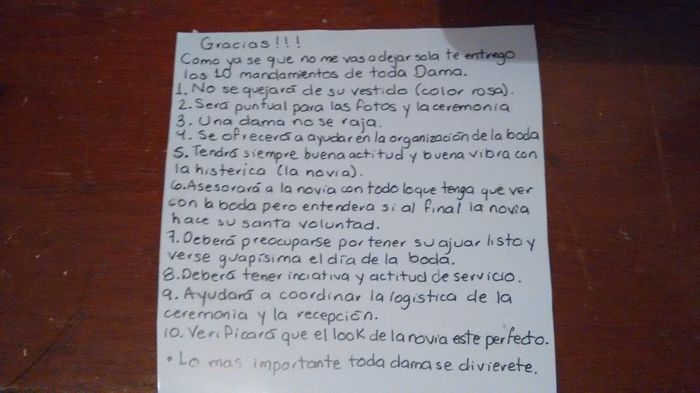 Gracias!!!
Como ya se que no me vas a dejar sola te entrego
los 10 mandamientos de toda Dama.
1. No se quejará de su vestido (color rosa).
2. Será puntual para las fotos y la ceremonia
3. Una dama no se raja.
4. Se ofrecerá a ayudar en la organización de la boda
5. Tendrá siempre buena actitud y buena vibra con
la histerica (la novia).
6. Asesorará a la novia con todo lo que tenga que ver
con la boda pero entendera si al final la novia
hace su santa voluntad.
7. Deberá preocuparse por tener su ajuar listo y
verse guapísima el día de la boda.
8. Deberá tener inciativa y actitud de servicio.
9. Ayudará a coordinar la logistica de la
ceremonia y la recepción.
10. Verificará que el look de la novia este perfecto.
• Lo mas importante toda dama se divierete.